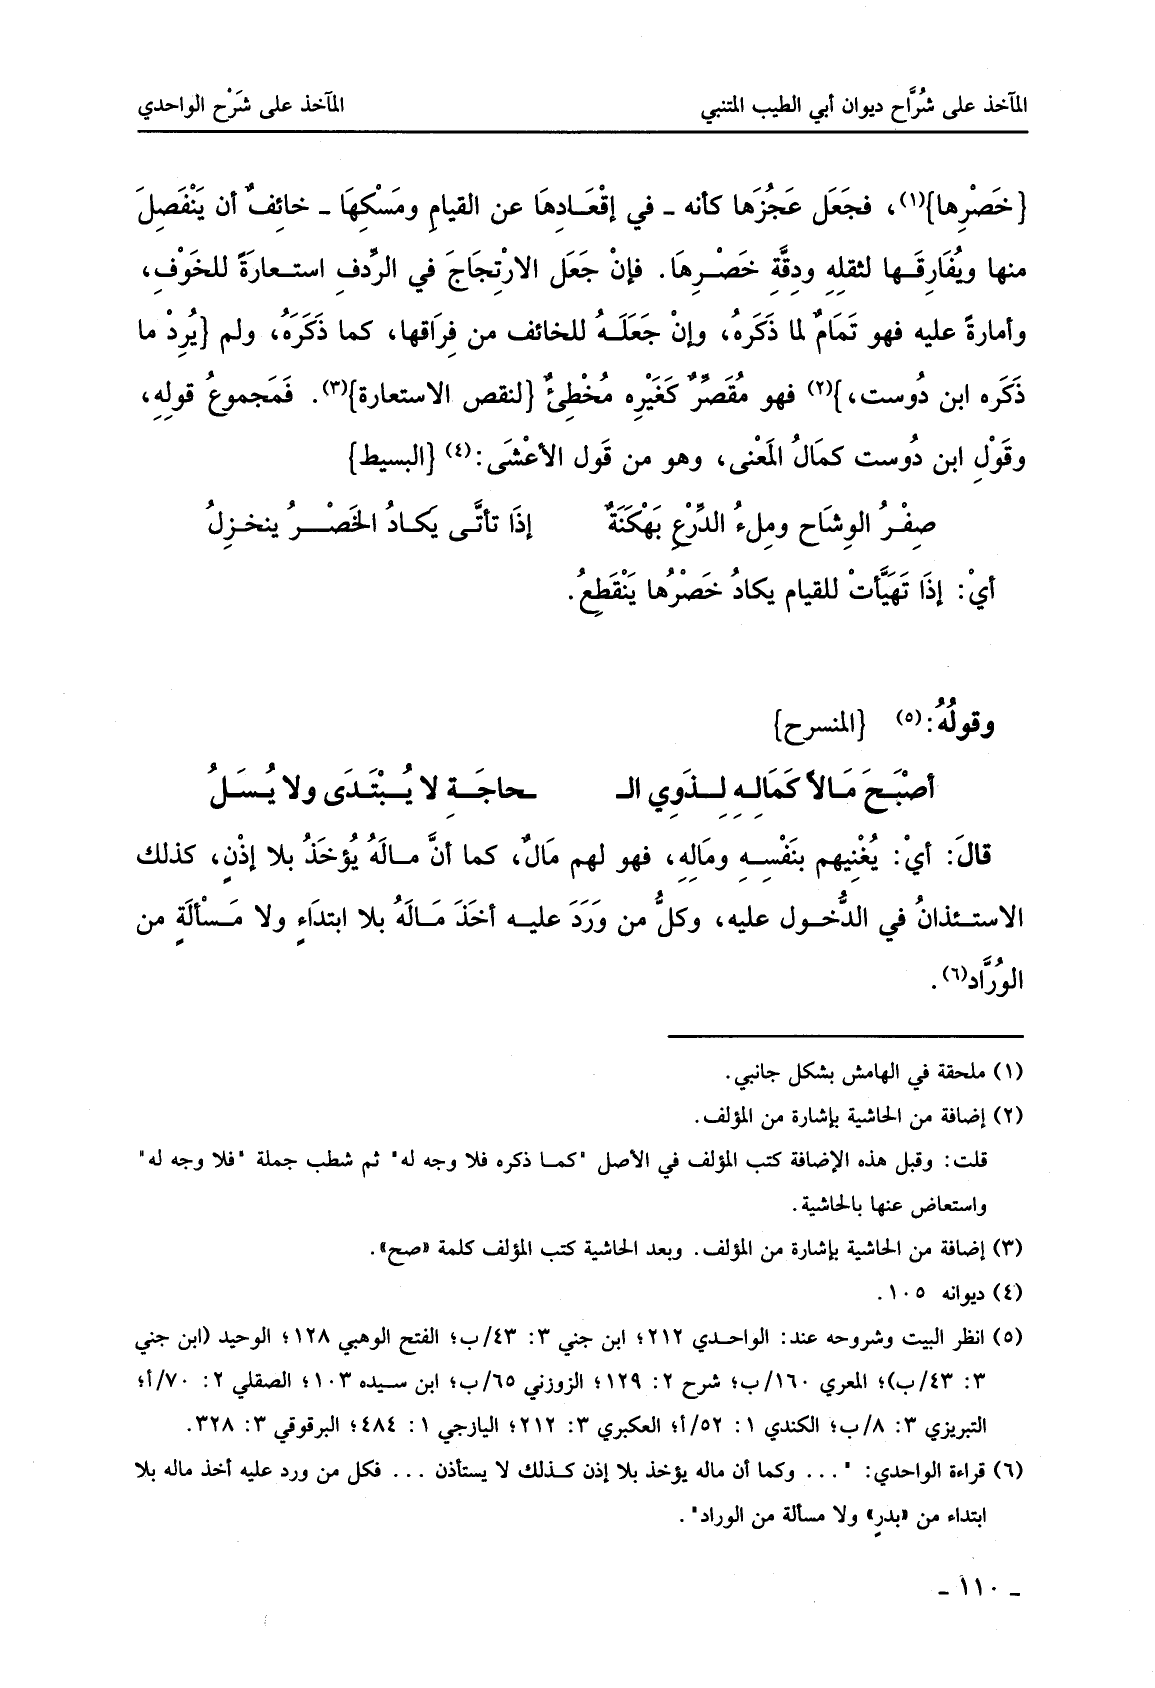 المآخذ على شُرَّاح ديوان أبي الطيب المتنبي المآخذ على شَرْح الواحدي
{خَصْرِها}(١)، فجَعَل عَجُزَها كأنه ـ في إقْعَادِهَا عن القيامِ ومَسْكِهَا ـ خائفٌ أن يَنْفَصِلَ
منها ويُفَارِقَها لثقلِهِ ودِقَّةِ خَصْرِهَا. فإنْ جَعَل الارْتِجَاجَ في الرِّدفِ استعارَةً للخَوْفِ،
وأمارةً عليه فهو تَمَامٌ لما ذَكَرهُ، وإنْ جَعَلَهُ للخائف من فِرَاقها، كما ذَكَرَهُ، ولم {يُرِدْ ما
ذَكَره ابن دُوست،}(٢) فهو مُقَصِّرٌ كَغَيْرِه مُخْطِئٌ {لنقص الاستعارة}(٣). فَمَجموعُ قولِهِ،
وقَوْلِ ابن دُوست كمَالُ المَعْنى، وهو من قَول الأعْشَى:(٤) {البسيط}
صِفْرُ الوِشَاح ومِلءُ الدِّرْعِ بَهْكَنَةٌ إذَا تأتَّى يَكادُ الخَصْرُ ينخزِلُ
أيْ: إذَا تَهَيَّأتْ للقيام يكادُ خَصْرُها يَنْقَطِعُ.
وقولُهُ:(٥) {المنسرح}
أصْبَحَ مَالاً كَمَالِهِ لِذَوِي الـ ـحاجَةِ لا يُبْتَدَى ولا يُسَلُ
قالَ: أيْ: يُغْنِيهم بنَفْسِهِ ومَالِهِ، فهو لهم مَالٌ، كما أنَّ مالَهُ يُؤخَذُ بلا إذْنٍ، كذلك
الاستئذانُ في الدُّخول عليه، وكلُّ من وَرَدَ عليه أخَذَ مَالَهُ بلا ابتدَاءٍ ولا مَسْألَةٍ من
الوُرَّاد(٦).
(١) ملحقة في الهامش بشكل جانبي.
(٢) إضافة من الحاشية بإشارة من المؤلف.
قلت: وقبل هذه الإضافة كتب المؤلف في الأصل "كما ذكره فلا وجه له" ثم شطب جملة "فلا وجه له"
واستعاض عنها بالحاشية.
(٣) إضافة من الحاشية بإشارة من المؤلف. وبعد الحاشية كتب المؤلف كلمة «صح».
(٤) ديوانه ١٠٥.
(٥) انظر البيت وشروحه عند: الواحدي ٢١٢؛ ابن جني ٣: ٤٣/ب؛ الفتح الوهبي ١٢٨؛ الوحيد (ابن جني
٣: ٤٣/ب)؛ المعري ١٦٠/ب؛ شرح ٢: ١٢٩؛ الزوزني ٦٥/ب؛ ابن سيده ١٠٣؛ الصقلي ٢: ٧٠/أ؛
التبريزي ٣: ٨/ب؛ الكندي ١: ٥٢/أ؛ العكبري ٣: ٢١٢؛ اليازجي ١: ٤٨٤؛ البرقوقي ٣: ٣٢٨.
(٦) قراءة الواحدي: "... وكما أن ماله يؤخذ بلا إذن كذلك لا يستأذن ... فكل من ورد عليه أخذ ماله بلا
ابتداء من «بدرٍ» ولا مسألة من الوراد".
ـ ١١٠ ـ